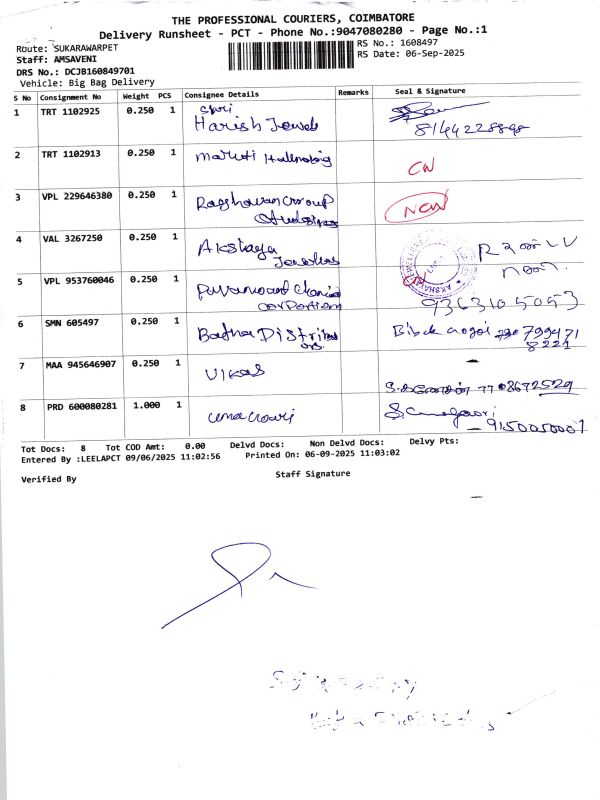 THE PROFESSIONAL COURIERS, COIMBATORE
Delivery Runsheet - PCT - Phone No.:9047080280 - Page No.:1
Route: SUKARAWARPET
RS No.: 1608497
Staff: AMSAVENI
RS Date: 06-Sep-2025
DRS No.: DCJB160849701
Vehicle: Big Bag Delivery
S No Consignment No Weight PCS Consignee Details Remarks Seal & Signature
1 TRT 1102925 0.250 1 Shri
Harish Jewels
8144228898
2 TRT 1102913 0.250 1 Maruti Hallmarking
CN
3 VPL 229646380 0.250 1 Raghavan Group
NCW
4 VAL 3267250 0.250 1 Akshaya
Jewellers
5 VPL 953760046 0.250 1
corporation
CN
9363105053
6 SMN 605497 0.250 1 Batha Distribu
799471
8221
7 MAA 945646907 0.250 1 Vikas
8 PRD 600080281 1.000 1 Uma Gowri
9150050007
Tot Docs: 8 Tot COD Amt: 0.00 Delvd Docs: Non Delvd Docs: Delvy Pts:
Entered By :LEELAPCT 09/06/2025 11:02:56 Printed On: 06-09-2025 11:03:02
Verified By
Staff Signature